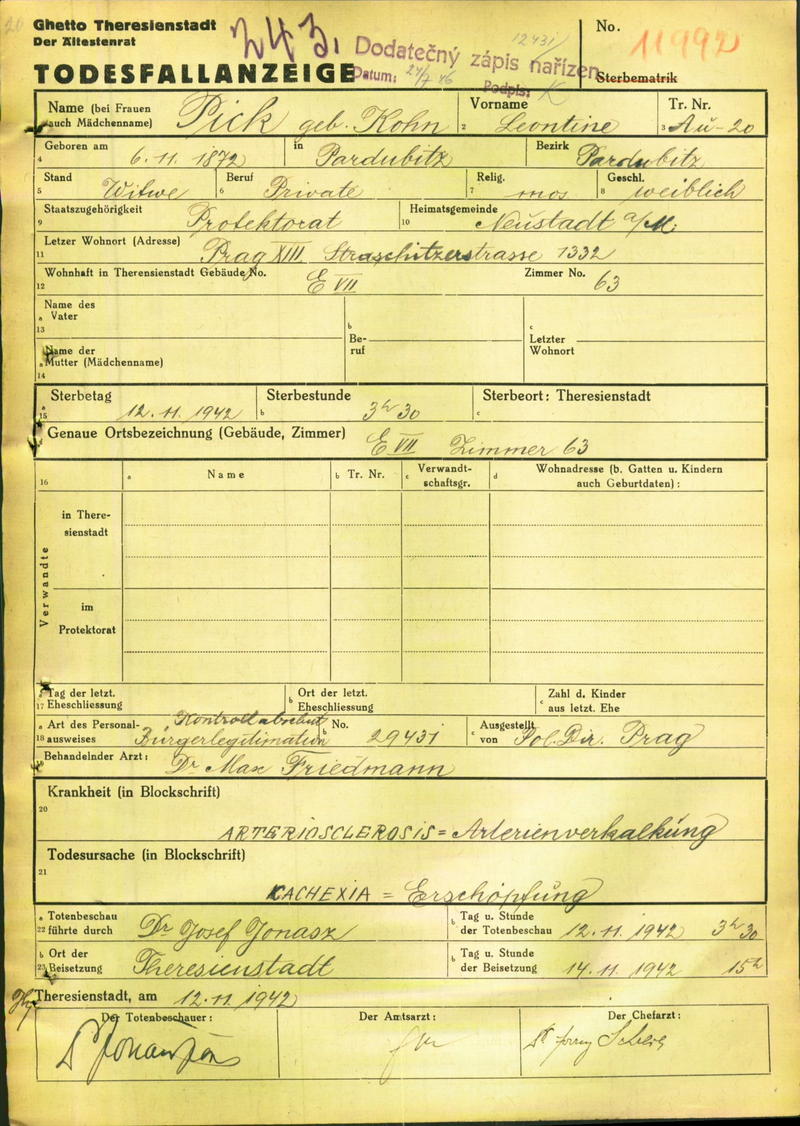 Ghetto Theresienstadt
Der Ältestenrat
TODESFALLANZEIGE
243.
Dodatečný zápis nařízen
Datum: 24/7 46
Podpis: K
12431/
No. 11992
Sterbematrik
Name (bei Frauen auch Mädchenname) Pick geb. Kohn
2 Vorname Leontine
3 Tr. Nr. Au-20
4 Geboren am 6. 11. 1872 in Pardubitz Bezirk Pardubitz
5 Stand Witwe 6 Beruf Private 7 Relig. mos 8 Geschl. weiblich
9 Staatszugehörigkeit Protektorat 10 Heimatsgemeinde Neustadt a/M.
11 Letzer Wohnort (Adresse) Prag XIII Straschitzerstrasse 1332
12 Wohnhaft in Therensienstadt Gebäude No. E VII Zimmer No. 63
13 Name des a Vater
14 Name der a Mutter (Mädchenname)
b Beruf
c Letzter Wohnort
15 a Sterbetag 12. 11. 1942 b Sterbestunde 3h 30 c Sterbeort: Theresienstadt
Genaue Ortsbezeichnung (Gebäude, Zimmer) E VII Zimmer 63
16 a Name b Tr. Nr. c Verwandtschaftsgr. d Wohnadresse (b. Gatten u. Kindern auch Geburtdaten):
Verwandte
in Theresienstadt
im Protektorat
17 a Tag der letzt. Eheschliessung b Ort der letzt. Eheschliessung c Zahl d. Kinder aus letzt. Ehe
18 a Art des Personalausweises Kontrollabschnitt Bürgerlegitimation b No. 29431 c Ausgestellt von Pol. Dir. Prag
Behandelnder Arzt: Dr Max Friedmann
Krankheit (in Blockschrift)
20 ARTERIOSCLEROSIS = Arterienverkalkung
Todesursache (in Blockschrift)
21 KACHEXIA = Erschöpfung
22 a Totenbeschau führte durch Dr Josef Jonasz b Tag u. Stunde der Totenbeschau 12. 11. 1942 3h 30
23 b Ort der Beisetzung Theresienstadt b Tag u. Stunde der Beisetzung 14. 11. 1942 15h
Theresienstadt, am 12. 11. 1942
Der Totenbeschauer: Der Amtsarzt: Der Chefarzt: